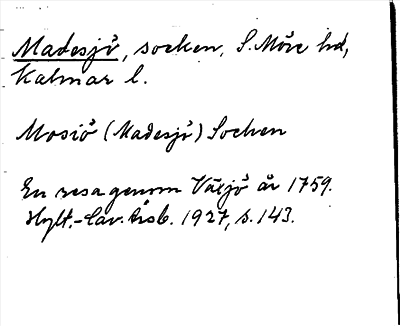 Madesjö, socken, S. Möre hd,
Kalmar l.
Mosiö (Madesjö) Socken
En resa genom Växjö år 1759.
Hylt.-Cav. Årsb. 1927, s. 143.